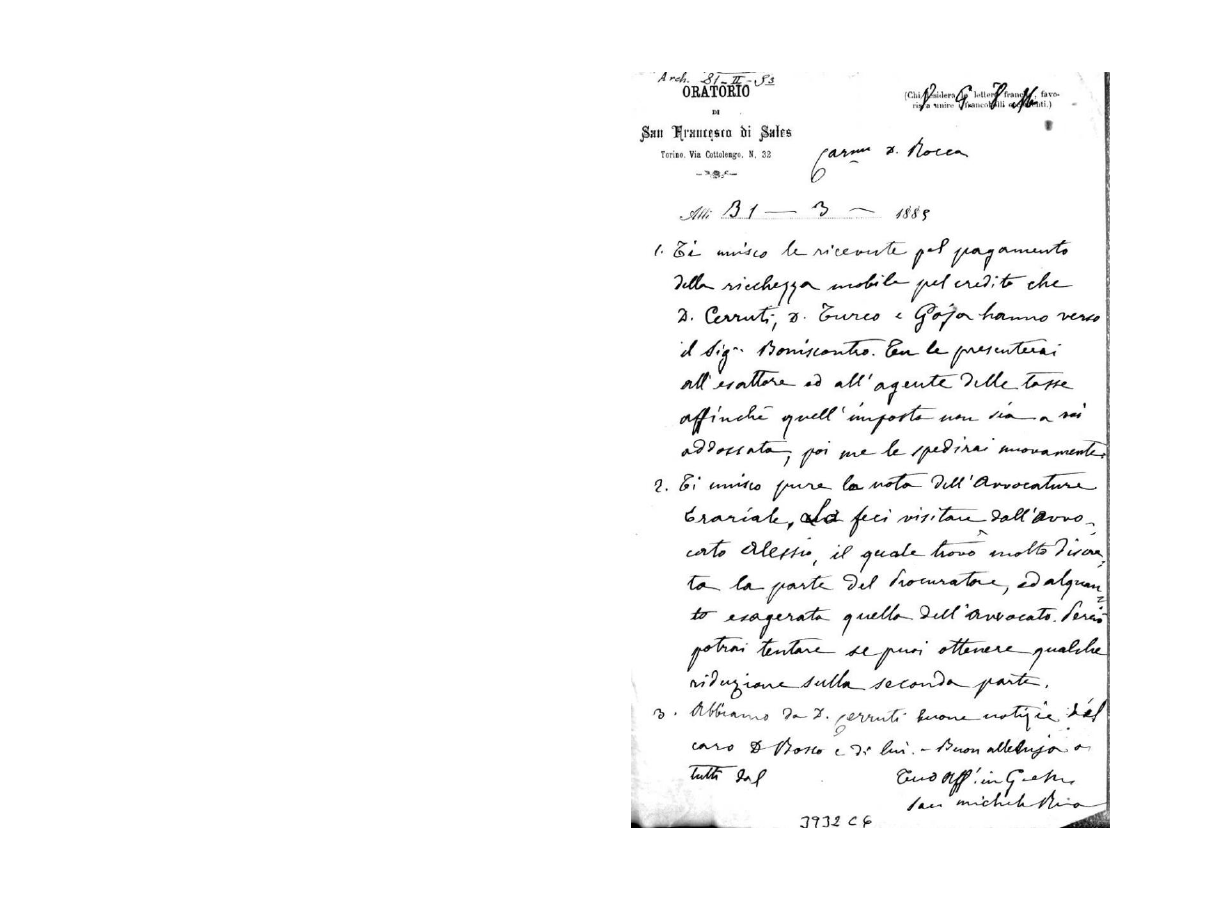 Arch. 31-II-93
ORATORIO
DI
San Francesco di Sales
Torino, Via Cottolengo, N. 32
(Chi desidera la lettera franca, favo-
risca unire francobolli o
P G I M
Carmo D. Rocca
Alli 31 — 3 — 1885
1. Ti unisco le ricevute pel pagamento
della ricchezza mobile pel credito che
D. Cerruti, D. Turco e Gojo hanno verso
il Sigr Boniscontro. Tu le presenterai
all'esattore ed all'agente delle tasse
affinchè quell'imposta non sia a voi
addossata, poi me le spedirai nuovamente.
2. Ti unisco pure la nota dell'Avvocatura
Erariale, La feci visitare dall'avvo-
cato Alessio, il quale trovò molto discre-
ta la parte del Procuratore, ed alquan-
to esagerata quella dell'avvocato. Perciò
potrai tentare se puoi ottenere qualche
riduzione sulla seconda parte.
3. Abbiamo da D. Cerruti buone notizie del
caro D Bosco e di lui. - Buon alleluja a
tutti dal
Tuo Aff. in G. e M.
Sac Michele Rua
3932 C 6